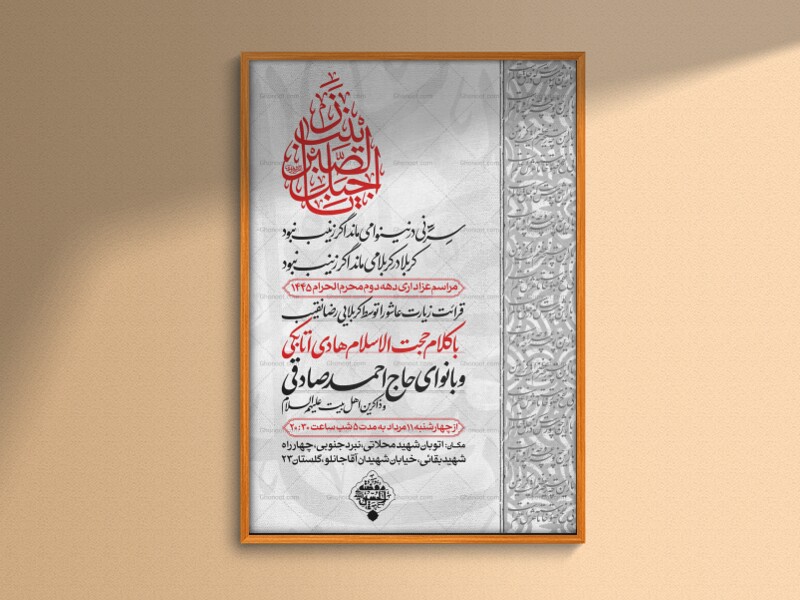 یا جبل الصبر زینب
سرّ نی در نینوا می ماند اگر زینب نبود
کربلا در کربلا می ماند اگر زینب نبود
مراسم عزاداری دهه دوم محرم الحرام ۱۴۴۵
قرائت زیارت عاشورا توسط کربلایی رضا نقیب
با کلام حجت الاسلام هادی اتابکی
و با نوای حاج احمد صادقی
و ذاکرین اهل بیت علیهم السلام
از چهارشنبه ۱۱ مرداد به مدت ۵ شب ساعت ۲۰:۳۰
مکان: اتوبان شهید محلاتی، نبرد جنوبی، چهارراه
شهید بقائی، خیابان شهیدان آقاجانلو، گلستان ۲۳
Ghonoot.com